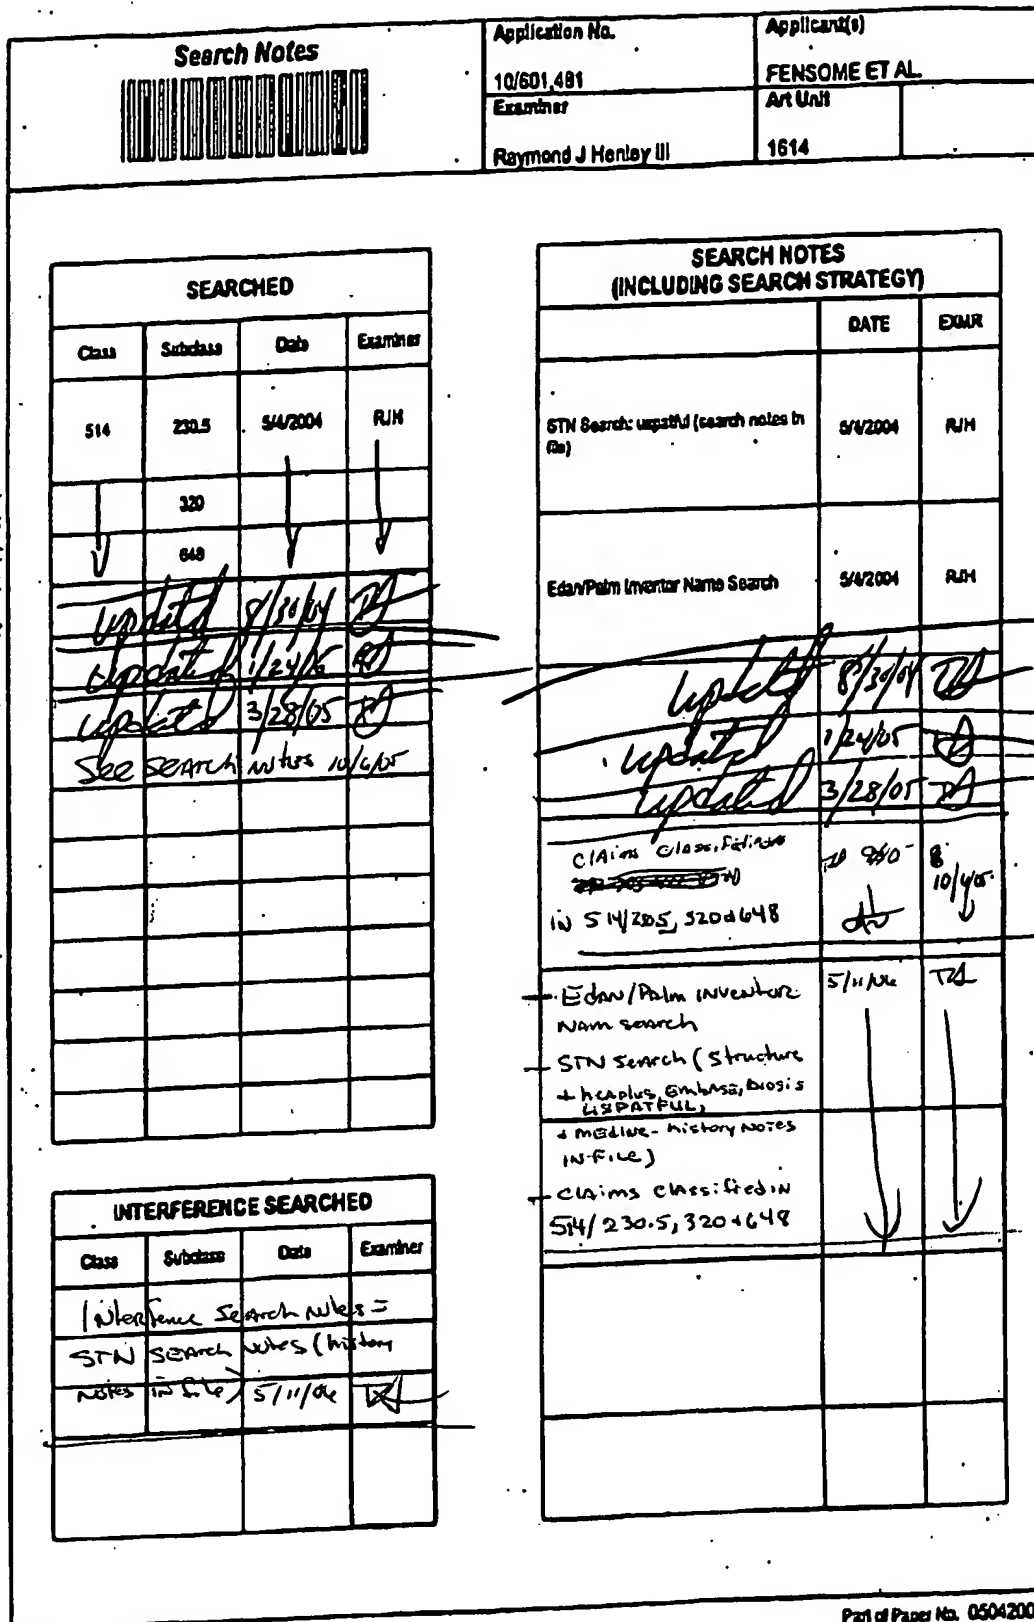 Search Notes
Application No.
10/601,491
Applicant(s)
FENSOME ET AL.
Examiner
Raymond J Henley III
Art Unit
1614
SEARCHED
Class Subclass Date Examiner
514 230.5 5/4/2004 RJH
320
648
updated 8/30/04
updated 1/24/05
updated 3/28/05
See SEARCH Notes 10/6/05
INTERFERENCE SEARCHED
Class Subclass Date Examiner
Interference Search Notes =
STN SEARCH Notes (history
Notes in file) 5/11/06
SEARCH NOTES
(INCLUDING SEARCH STRATEGY)
DATE EXMR
STN Search: uspatful (search notes in
file) 5/4/2004 RJH
Edan/Palm Inventor Name Search 5/4/2004 RJH
updated 8/30/04
updated 1/24/05
updated 3/28/05
Claims Classified
IN 514/230.5, 320+648
EDAN/Palm INVENTOR 5/11/06
Nam search
STN Search (Structure
+ hcaplus, Embase, Biosis
USPATFUL,
+ medline - history Notes
IN FILE)
Claims Classified in
514/230.5, 320+648
Part of Paper No. 0504200